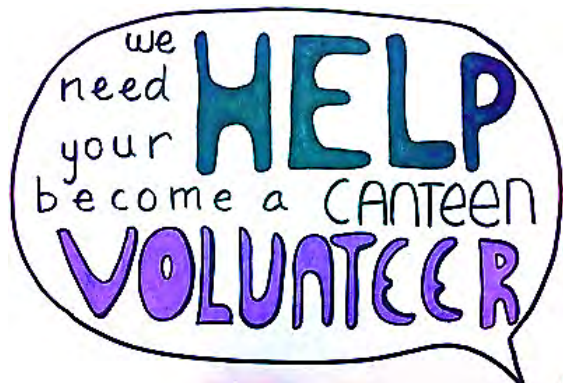 we
need
your HELP
become a CANTEEN
VOLUNTEER